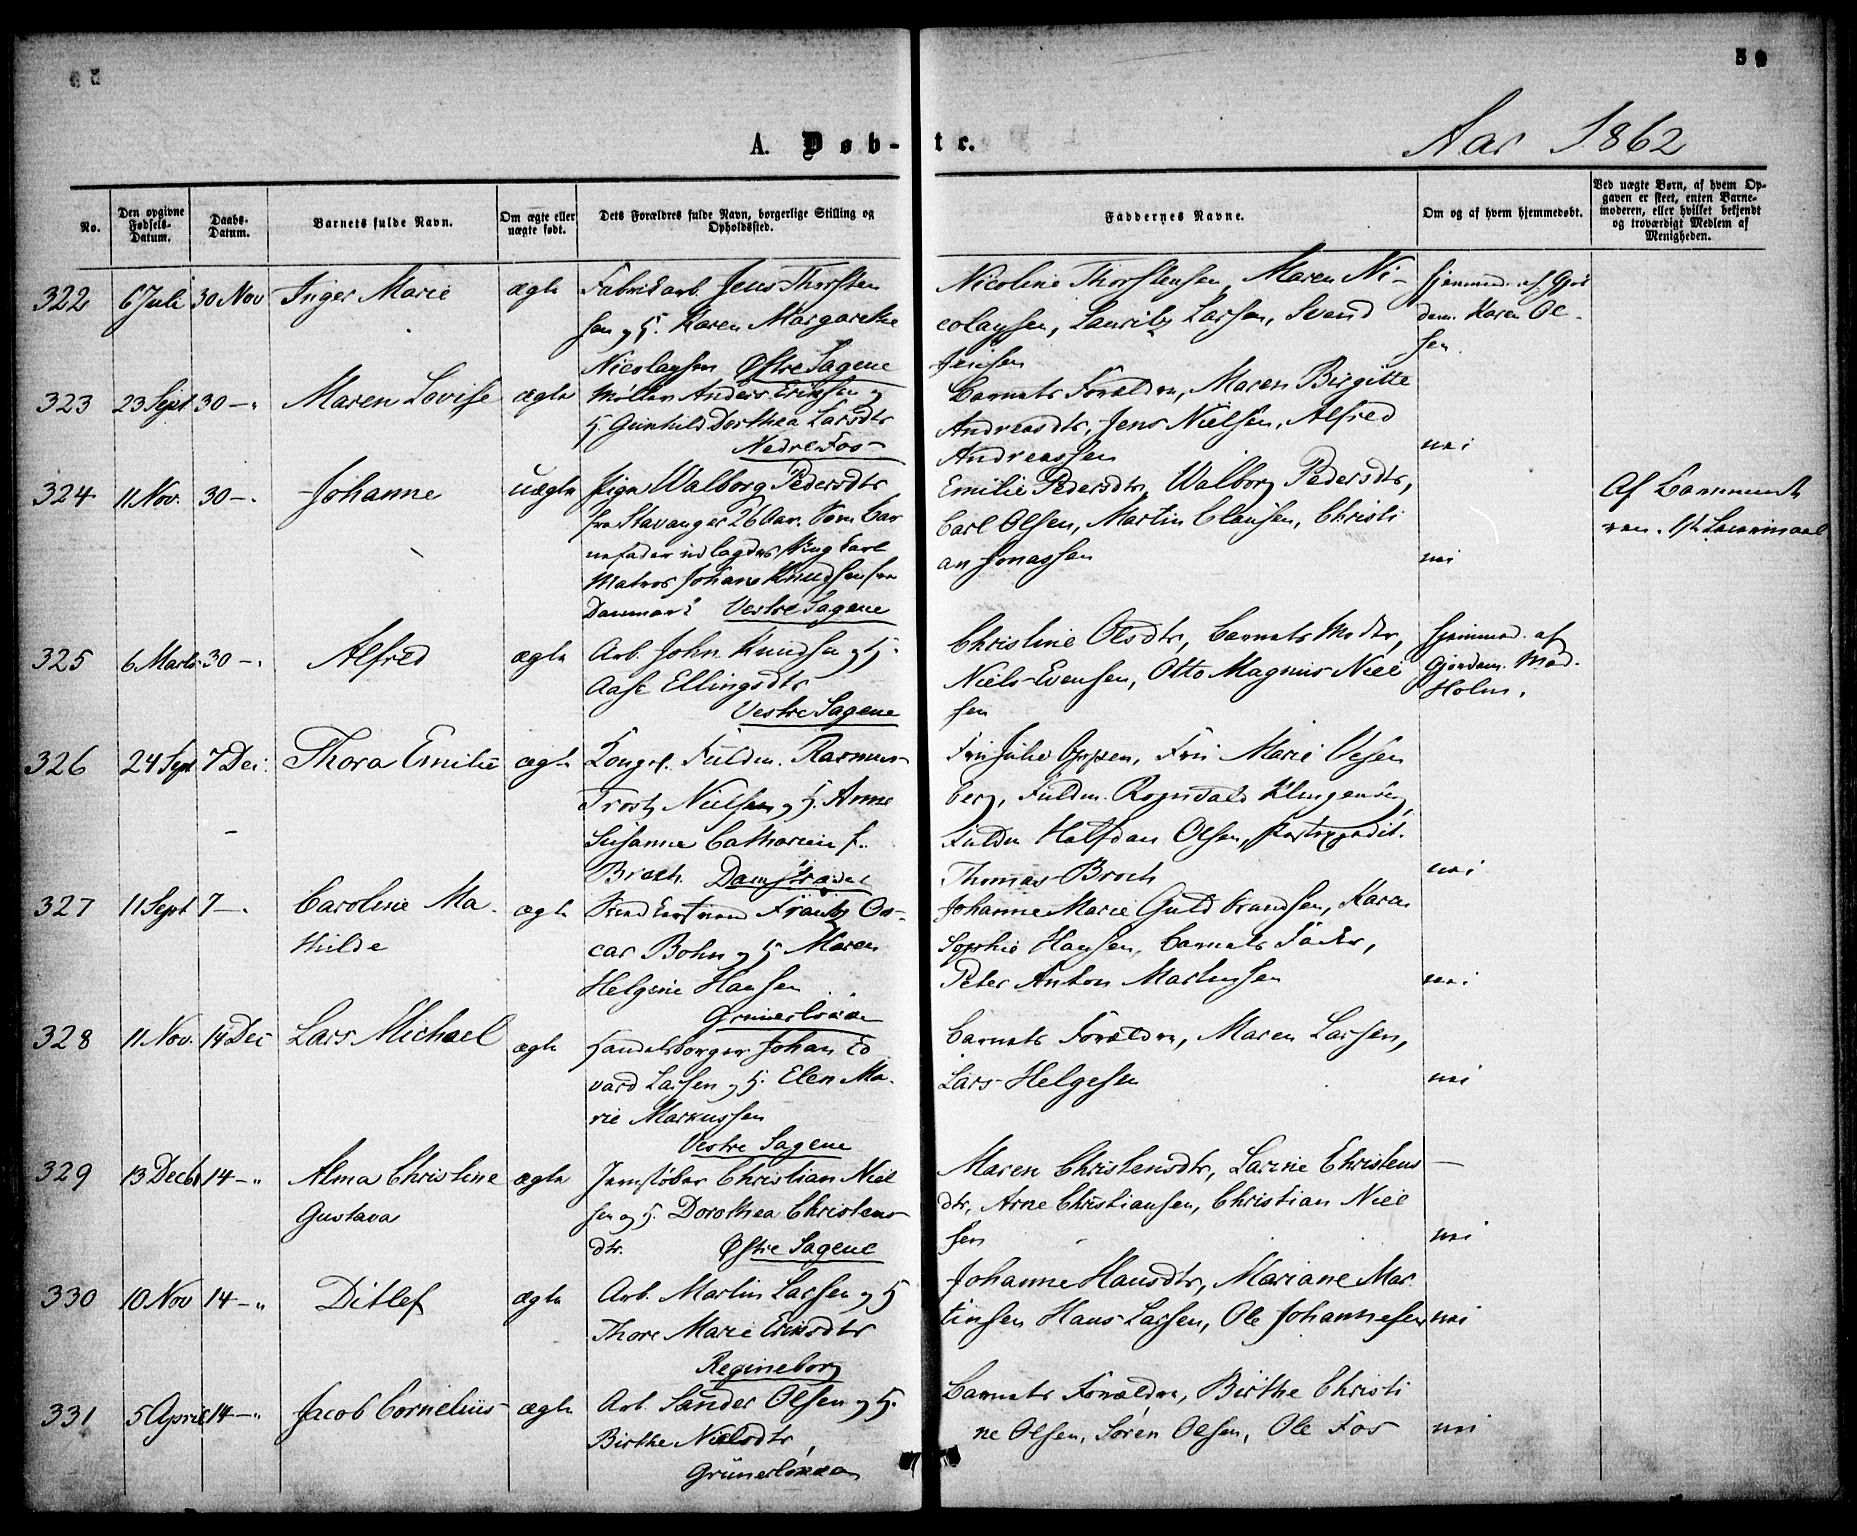 59
A. Døb-te.
Aar 1862
No.
Den opgivne Fødsels-Datum.
Daabs-Datum.
Barnets fulde Navn.
Om ægte eller uægte født.
Dets Forældres fulde Navn, borgerlige Stilling og Opholdssted.
Faddernes Navne.
Om og af hvem hjemmedøbt.
Ved uægte Børn, af hvem Opgaven er skeet, enten Barnemoderen, eller hvilket bekjendt og troværdigt Medlem af Menigheden.
322 6 Juli 30 Nov Inger Marie ægte Fabrikarb. Jens Thorsten
sen og H. Karen Margarethe
Nicolaysen Østre Sagene
Nicoline Thorstensen, Maren Ni-
colaysen, Lauritz Larsen, Svend
Jensen
hjemmed. af Gjor
dem. Karen Ol-
sen.
323 23 Sept 30 -" Maren Lovise ægte Møller Anders Eriksen og
H. Gunhild Dorthea Larsdtr
Nedre Fos
Barnets Forældre, Maren Birgitte
Andreasdtr, Jens Nielsen, Alfred
Andreassen
nei
324 11 Nov. 30 -" Johanne uægte Pige Walborg Pedersdtr
fra Stavanger 26 Aar. Som Bar
nefader udlagdes Ung Carl
Matros Johan Knudsen fra
Danmark Vestre Sagene
Emilie Pedersdtr, Walborg Pedersdtr,
Carl Olsen, Martin Clausen, Christi
an Jonassen
nei
Af Barnemode
ren. 1ste Leiermaal
325 6 Marts 30 -" Alfred ægte Arb. John Knudsen og H.
Aase Ellingsdtr
Vestre Sagene
Christine Olsdtr, Barnets Moder,
Niels Evensen, Otto Magnus Niel
sen
hjemmed. af
Gjordem. Mad.
Holm.
326 24 Sept 7 Dec. Thora Emilie ægte Kongel. Fuldm. Rasmus
Trost Nielsen og H. Anne
Susanne Catharine f.
Broch. Damstrædet
Frøk Julie Oppen, Frk Marie Vesen
berg, Fuldm. Rognvald Klingenberg
Fuldm Halfdan Olsen, Postexpedit.
Thomas Broch
nei
327 11 Sept 7 -" Caroline Ma-
thilde
ægte Frantz Os-
car Bohn og H. Maren
Helgine Hansen
Grünerløkken
Johanne Marie Guldbrandsen, Karen
Sophie Hansen, Barnets Fader,
Peter Anton Martinsen
nei
328 11 Nov. 14 Dec Lars Michael ægte Handelsborger Johan Ed
vard Larsen og H. Elen Ma-
rie Markussen
Vestre Sagene
Barnets Forældre, Maren Larsen,
Lars Helgesen
nei
329 13 Decbr 14 -" Alma Christine
Gustava
ægte Jernstøber Christian Niel
sen og H. Dorothea Christens
dtr. Østre Sagene
Maren Christensdtr, Larine Christens
dtr, Arne Christiansen, Christian Niel
sen
nei
330 10 Nov 14 -" Ditlef ægte Arb. Martin Larsen og H
Thore Marie Eriksdtr
Regineborg
Johanne Hansdtr, Mariane Mar
tinsen Hans Larsen, Ole Johannesen nei
331 5 April 14 -" Jacob Cornelius ægte Arb. Sander Olsen og H.
Birthe Nielsdtr,
Grünerløkken
Barnets Forældre, Birthe Christi
ne Olsen, Søren Olsen, Ole Fos nei